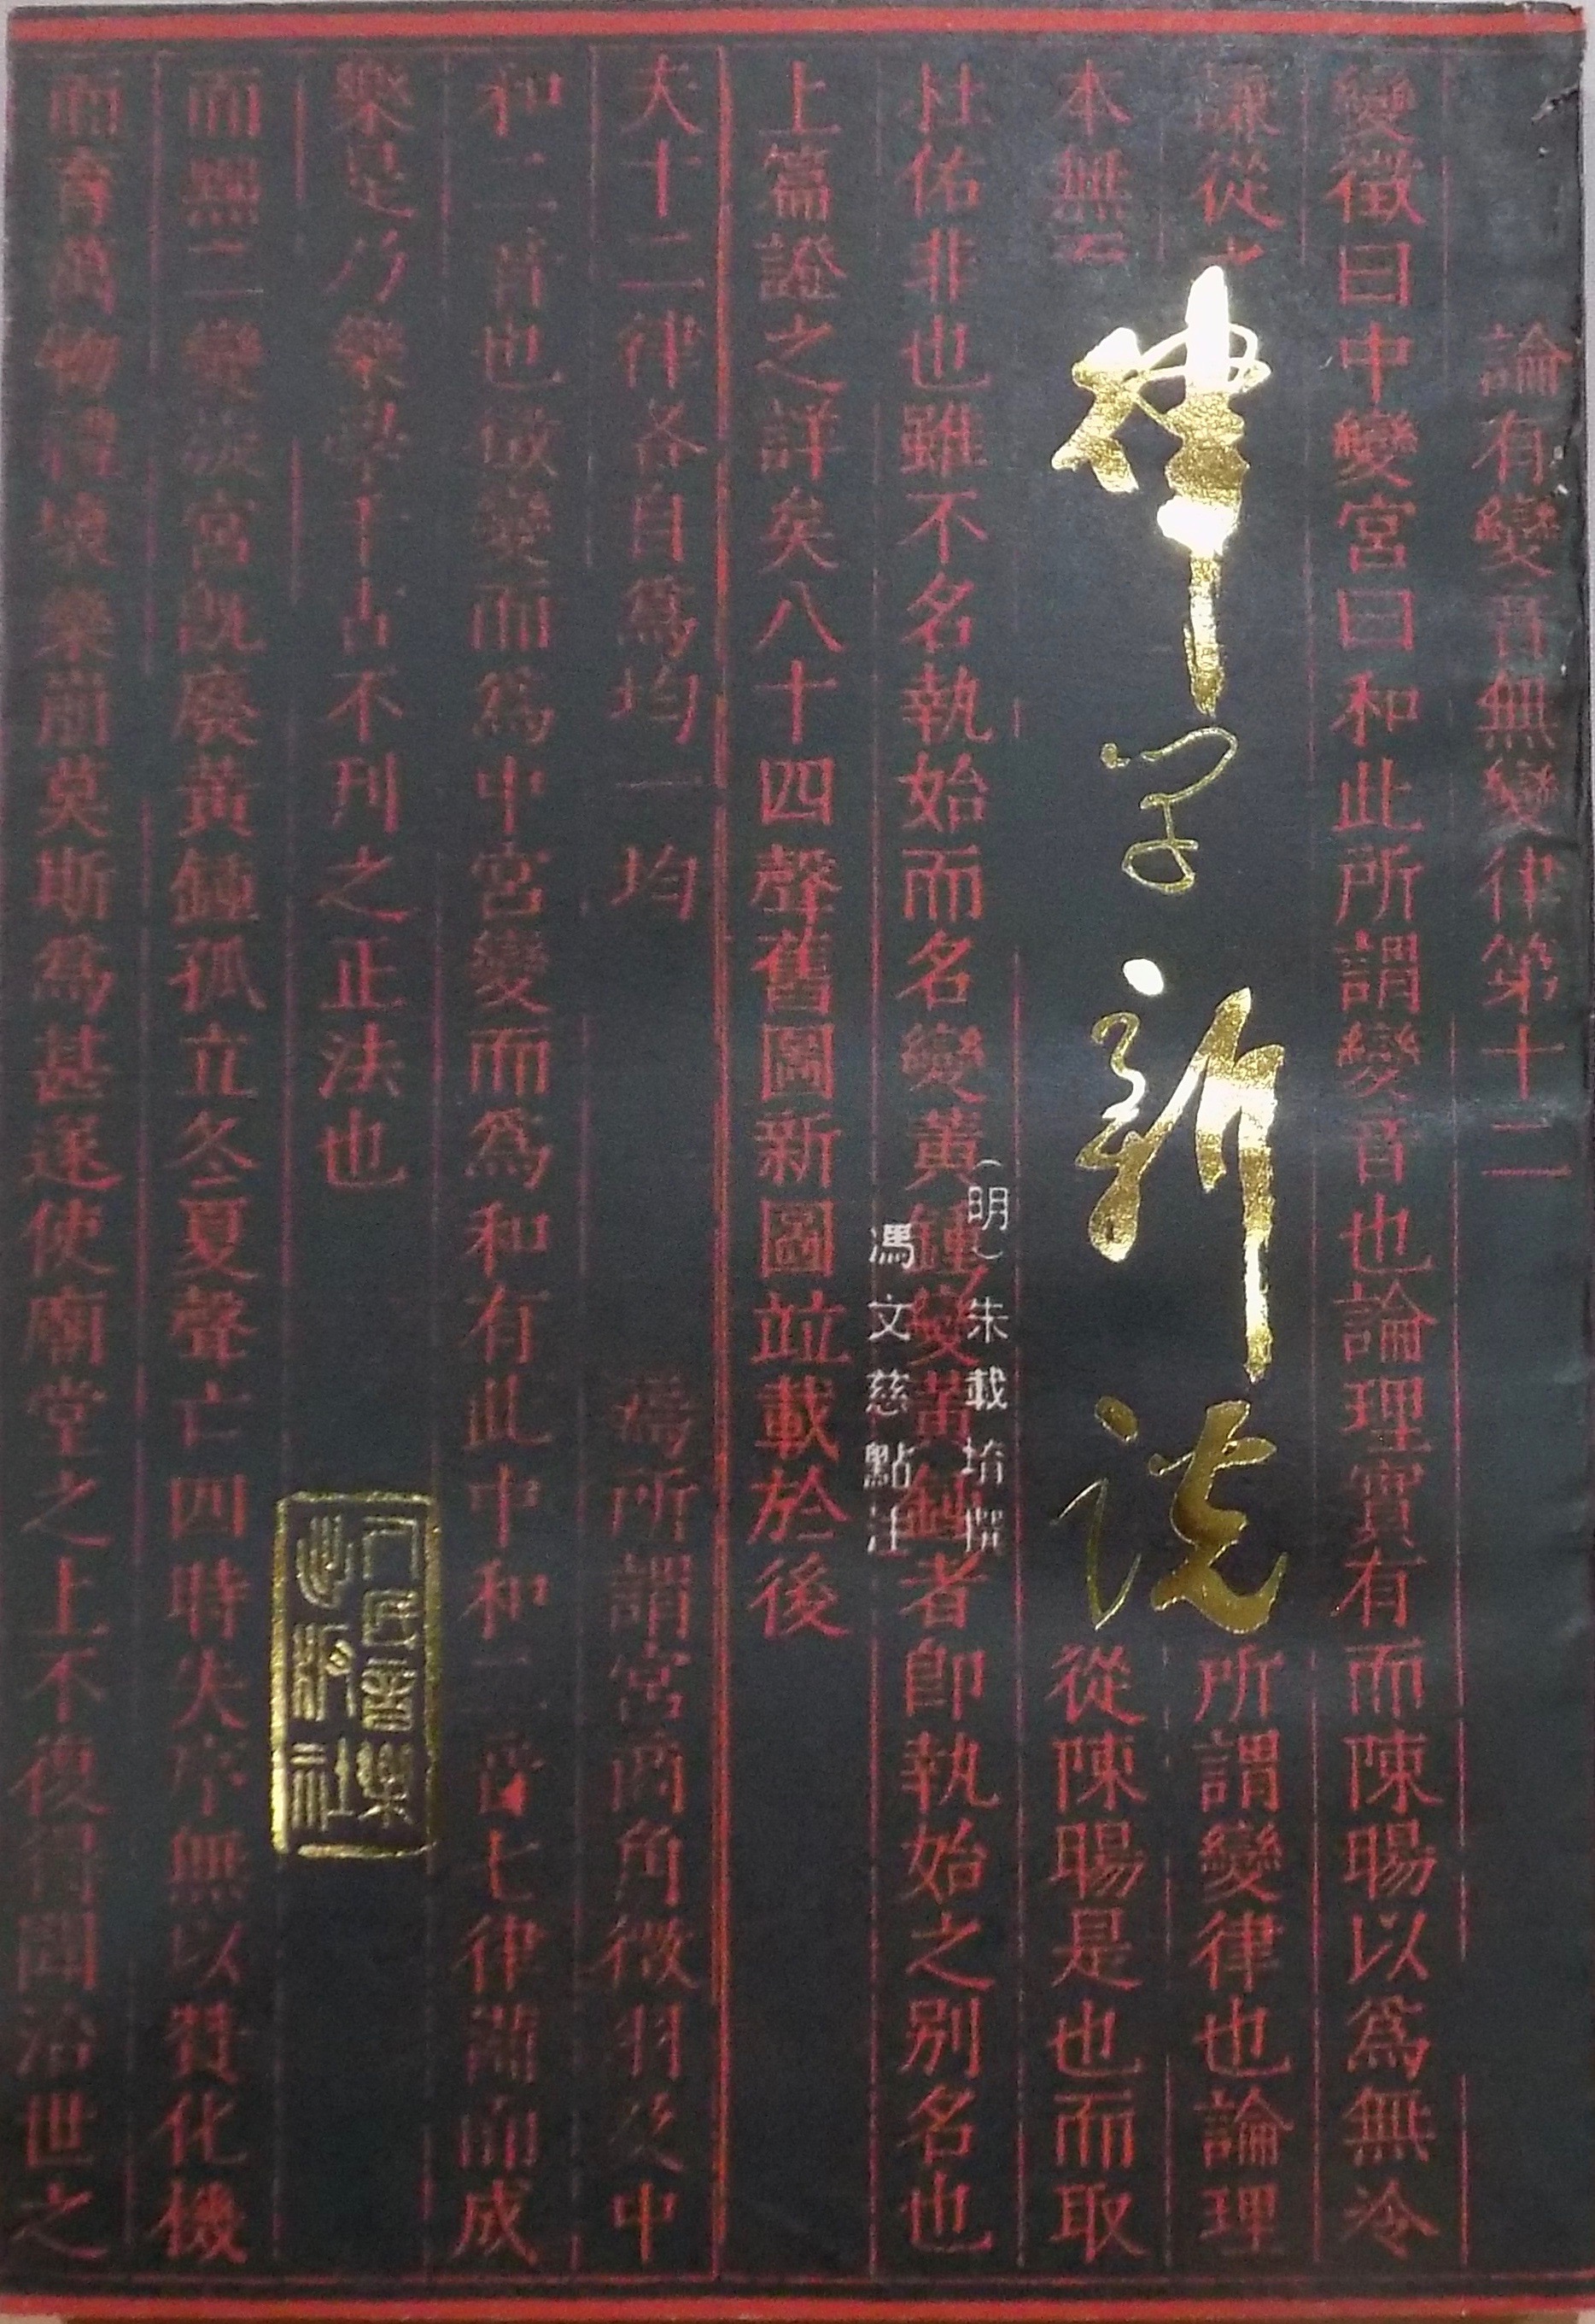 論有變音無變律第十二
變徵曰中變宮曰和此所謂變音也論理實有而陳暘以爲無冷
謙從之 所謂變律也論理
本無而 從陳暘是也而取
杜佑非也雖不名執始而名變黃鍾變黃鍾者卽執始之別名也
上篇證之詳矣八十四聲舊圖新圖竝載於後
律学新说
（明）朱載堉撰
馮文慈點注
夫十二律各自爲均一均 爲所謂宮商角徵羽及中
和二音也徵變而爲中宮變而爲和有此中和二音七律謂而成
樂是乃樂學千古不刊之正法也
而黜二變變宮旣廢黃鍾孤立冬夏聲亡四時失序無以贊化機
而育萬物禮壞樂崩莫斯爲甚遂使廟堂之上不復得聞治世之
人民音樂
出版社